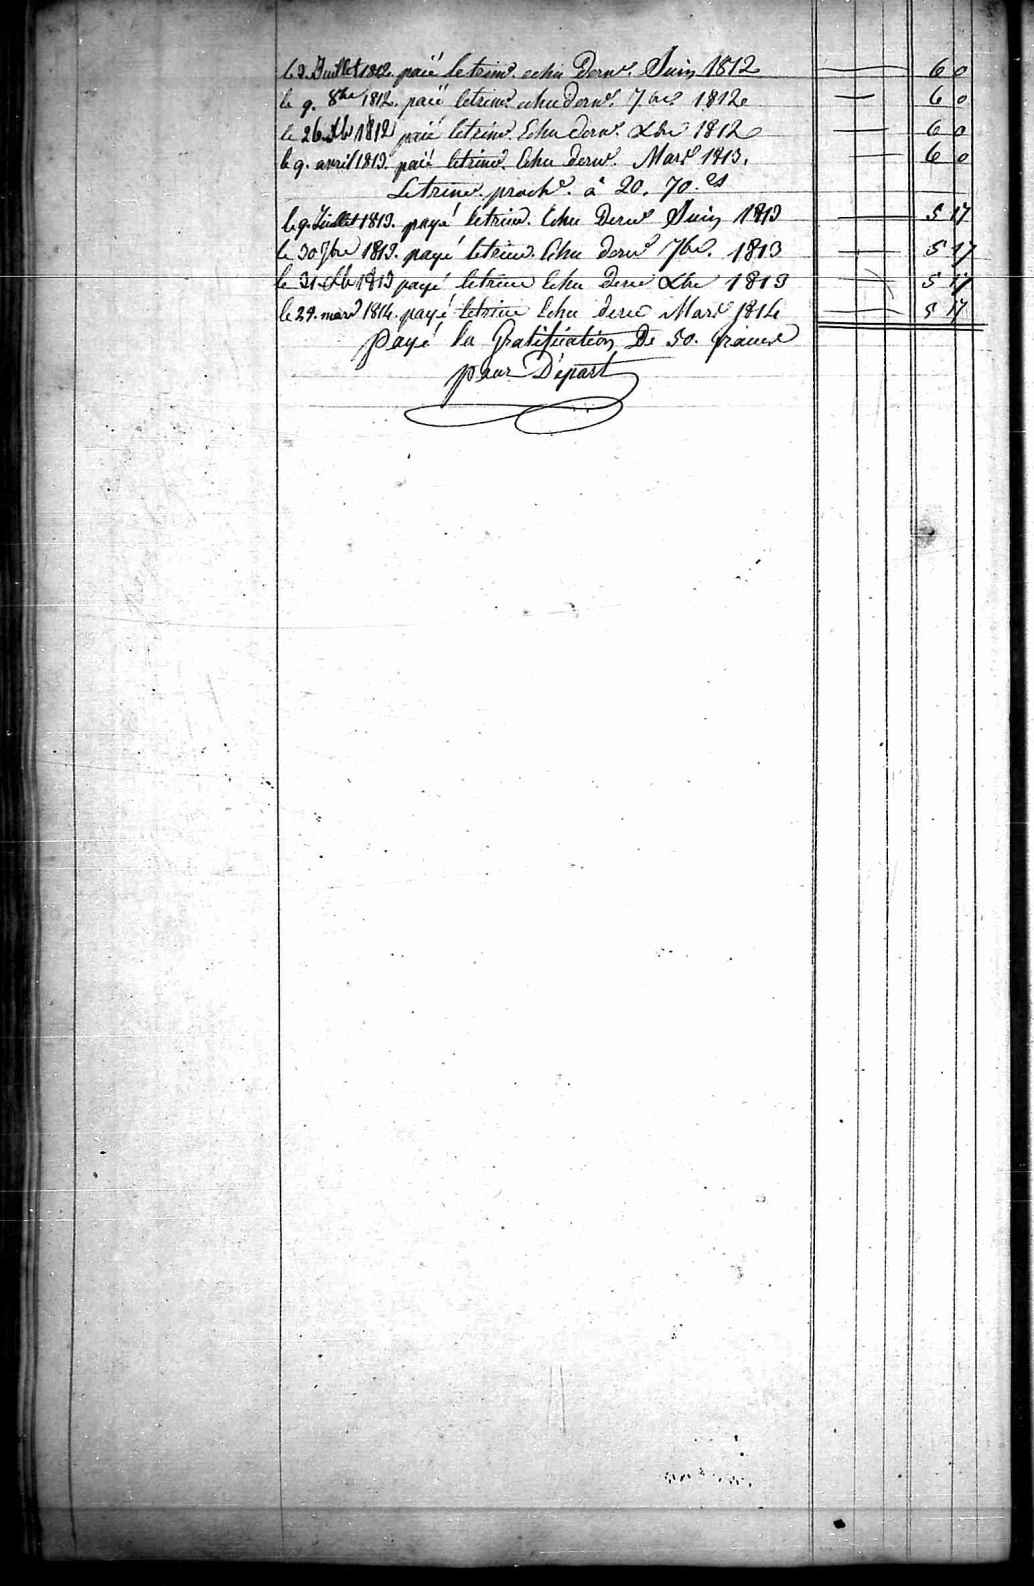 le 9. Juillet 1812. paié le trim.e echu dern.r Juin 1812 — 6 0
le 9. 8bre 1812. paié le trim.e echu dern.r 7bre 1812 — 6 0
le 26 Xbre 1812 paié le trim.e Echu dern.r Xbre 1812 — 6 0
le 9. avril 1813. paié le trim.e Echu dern.r Mars 1813. — 6 0
Le trime. proch.e à 20. 70.es
le 9. Juillet 1813. payé le trim.e Echu dern.r Juin 1813 — 5 17
le 30 7bre 1813. payé le trim.e Echu dern.r 7bre. 1813 — 5 17
le 31 Xbre 1813 payé le trime Echu dern Xbre 1813 — 5 17
le 29. mars 1814. payé le trime Echu dern Mars 1814 — 5 17
Payé la Gratification De 50. francs
pour Départ